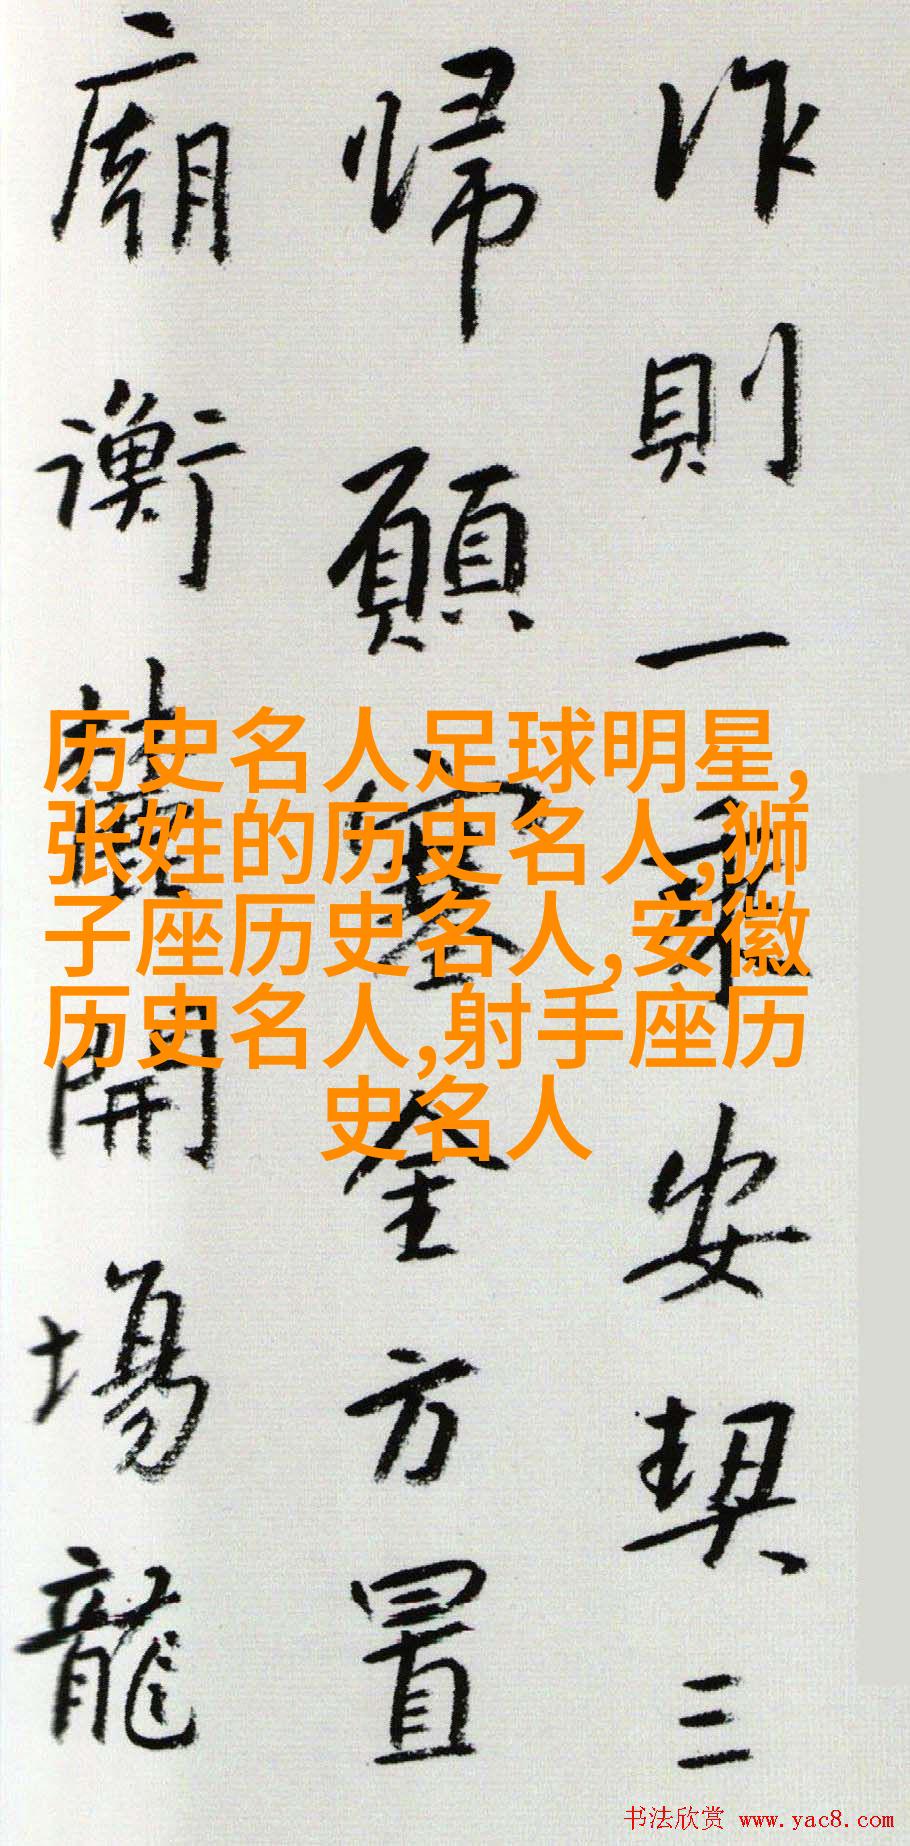 作則一乘安契三
歸願塞全方置
廟衡麓開場龍
历史名人足球明星,
张姓的历史名人,狮
子座历史名人,安徽
历史名人,射手座历
史名人
书法欣赏 www.yac8.com